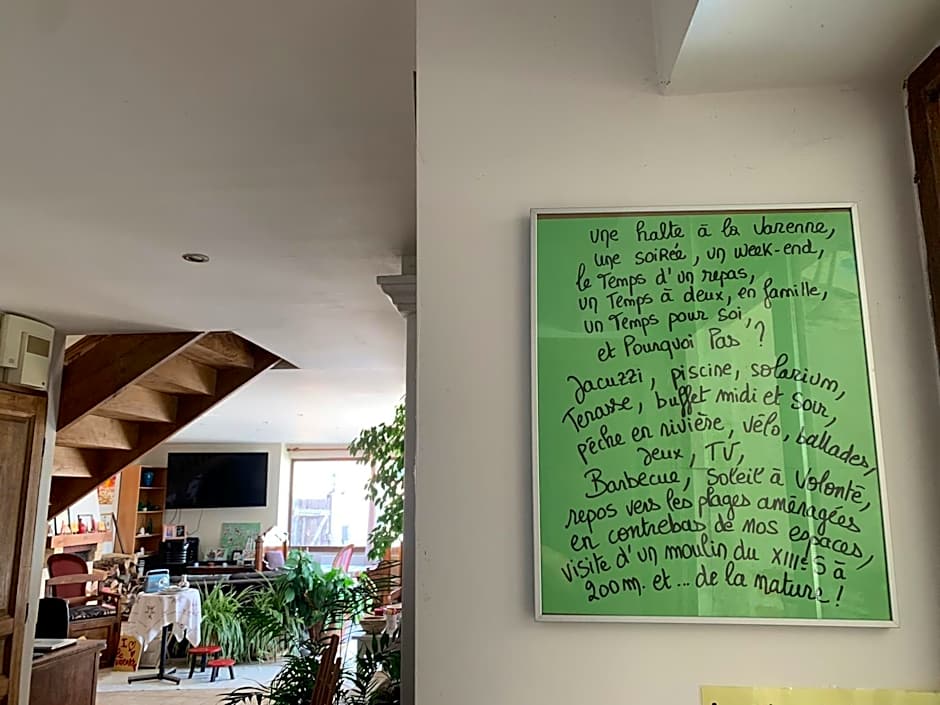 une halte à la Varenne,
une soirée, un week-end,
le Temps d'un repas,
un Temps à deux, en famille,
un Temps pour soi,
et Pourquoi Pas ?
Jacuzzi, piscine, solarium,
Terrasse, buffet midi et soir,
pêche en rivière, vélo, ballades,
Jeux, TV,
Barbecue, soleil à Volonté,
repos vers les plages aménagées
en contrebas de nos espaces,
visite d'un moulin du XIIIe S à
200m. et ... de la nature !